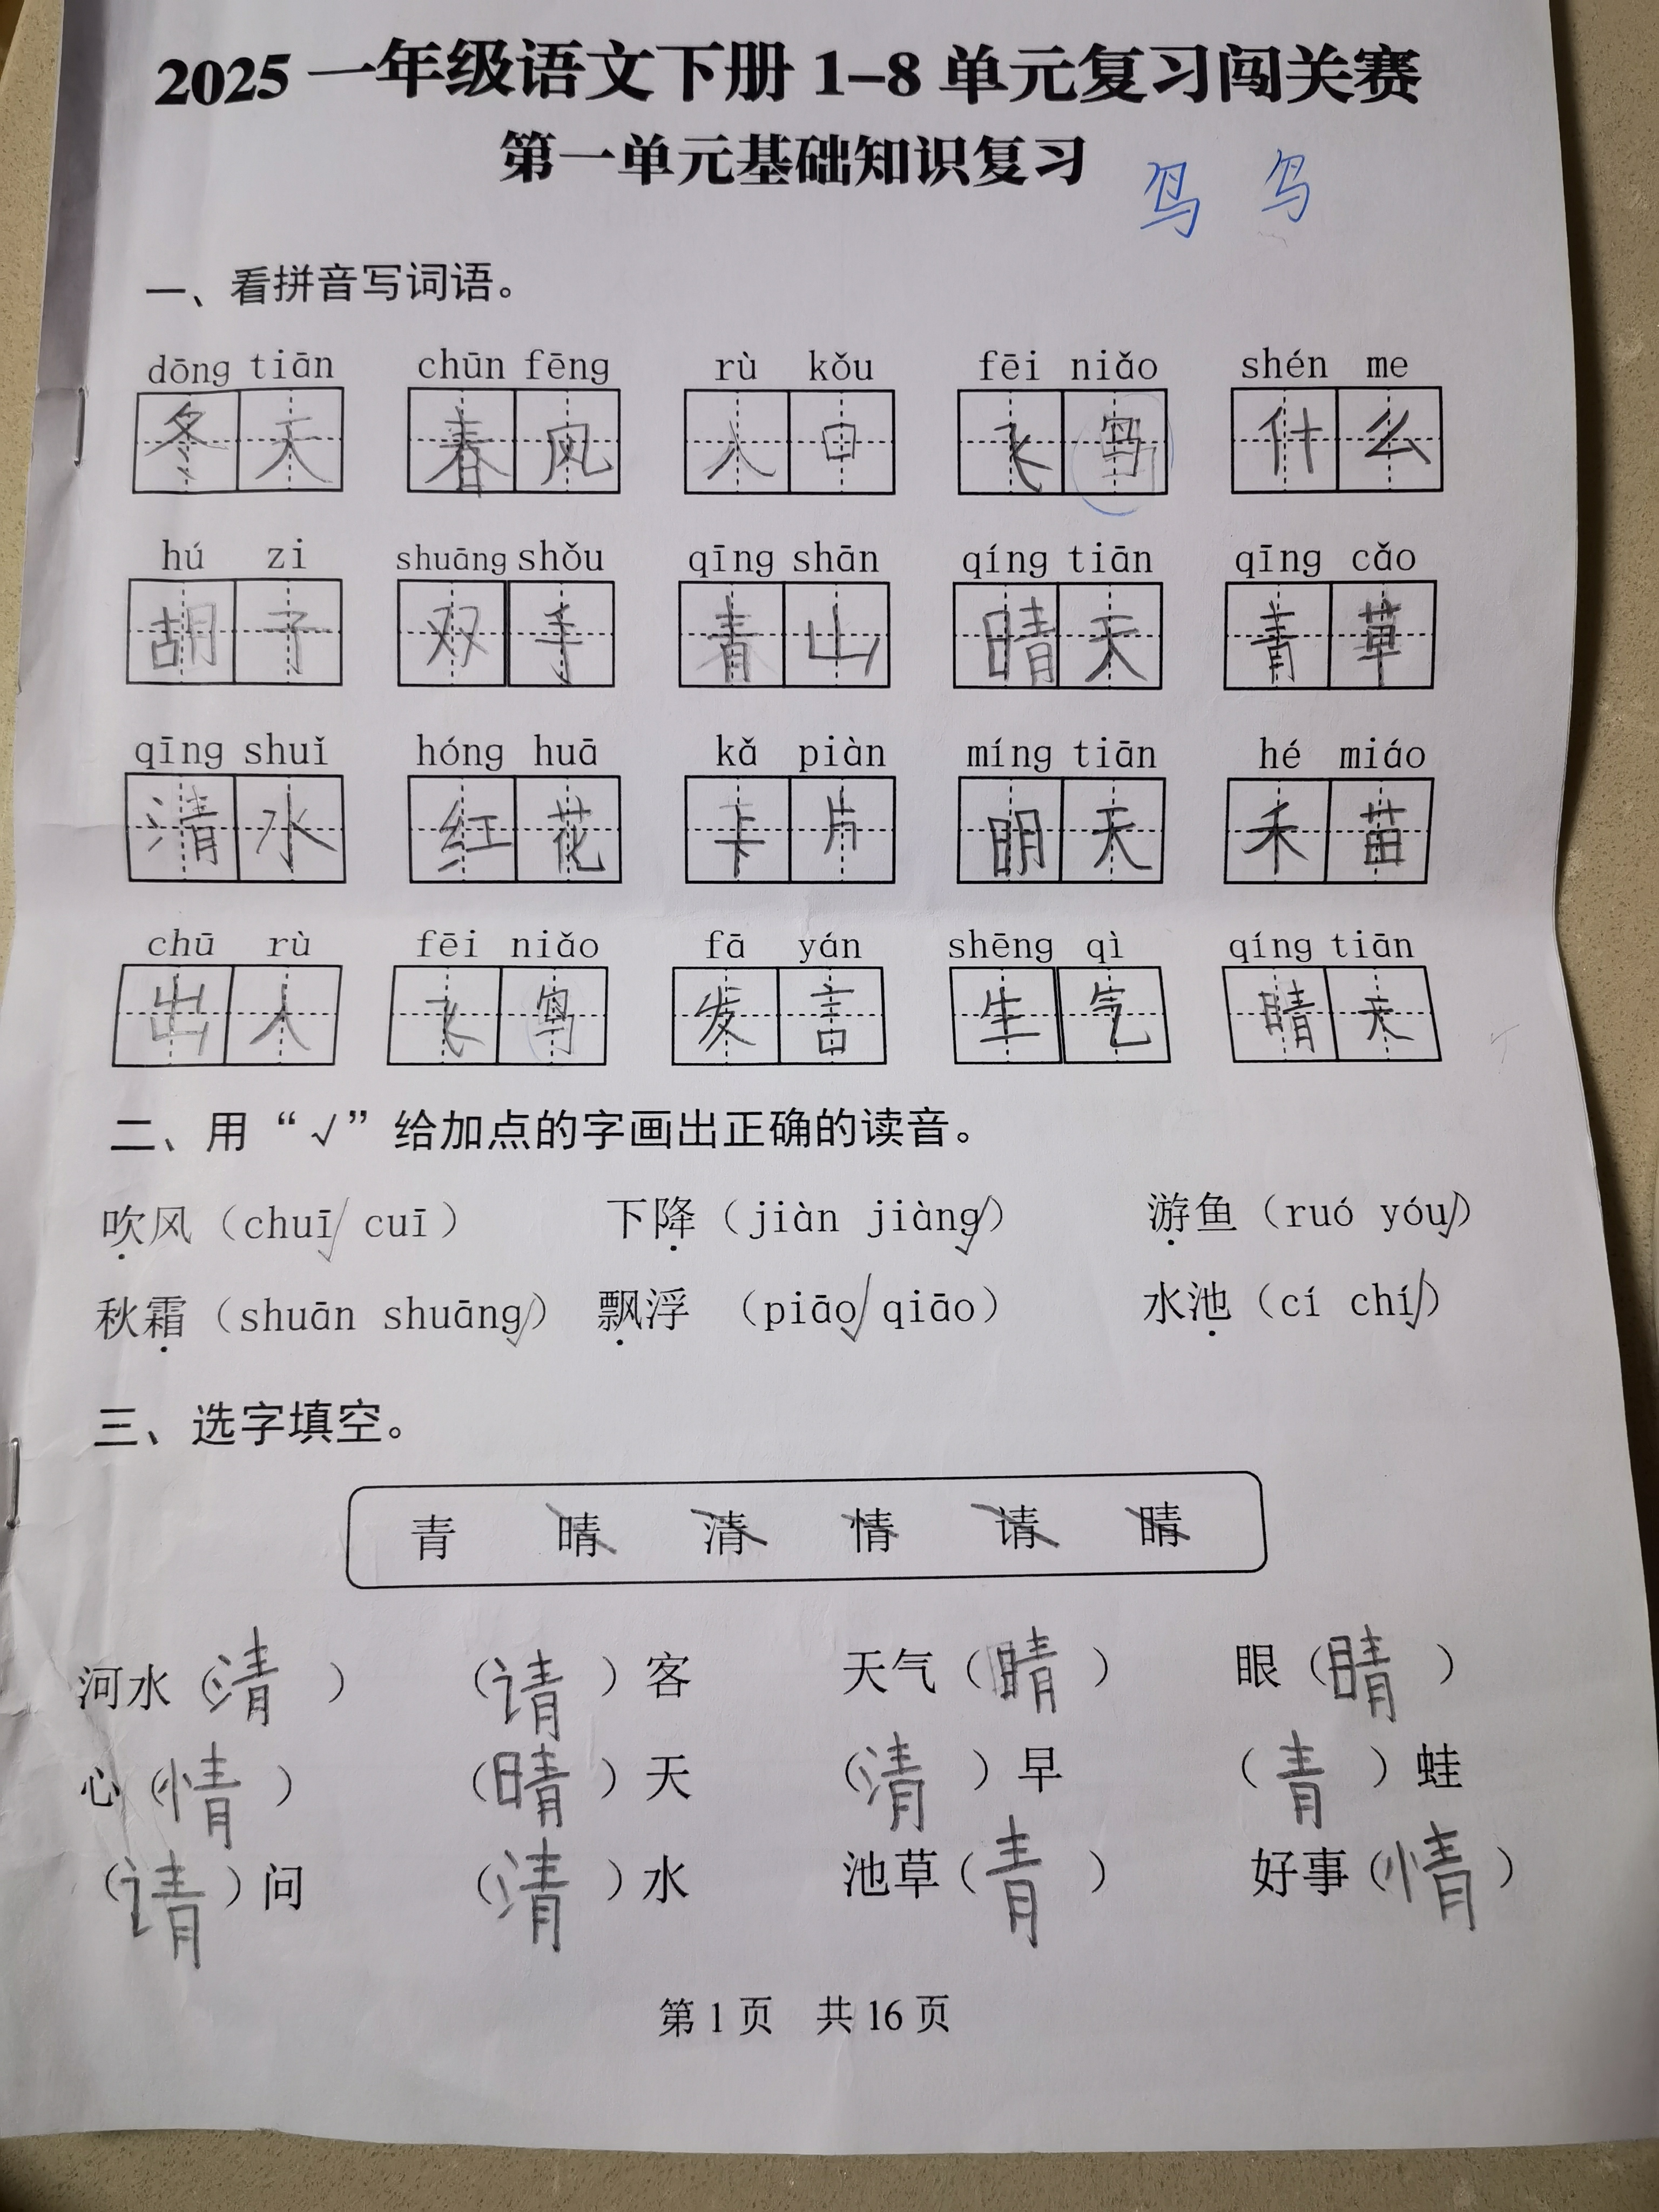 2025 一年级语文下册 1-8 单元复习闯关赛
第一单元基础知识复习 鸟 鸟
一、看拼音写词语。
dōng tiān chūn fēng rù kǒu fēi niǎo shén me
冬天 春风 入口 飞鸟 什么
hú zi shuāng shǒu qīng shān qíng tiān qīng cǎo
胡子 双手 青山 晴天 青草
qīng shuǐ hóng huā kǎ piàn míng tiān hé miáo
清水 红花 卡片 明天 禾苗
chū rù fēi niǎo fā yán shēng qì qíng tiān
出入 飞鸟 发言 生气 晴天
二、用“√”给加点的字画出正确的读音。
吹风（chuī√ cuī） 下降（jiàn jiàng√） 游鱼（ruó yóu√）
秋霜（shuān shuāng√） 飘浮 （piāo√ qiāo） 水池（cí chí√）
三、选字填空。
青 晴 清 情 请 睛
河水（清） （请）客 天气（晴） 眼（睛）
心（情） （晴）天 （清）早 （青）蛙
（请）问 （清）水 池草（青） 好事（情）
第 1 页 共 16 页